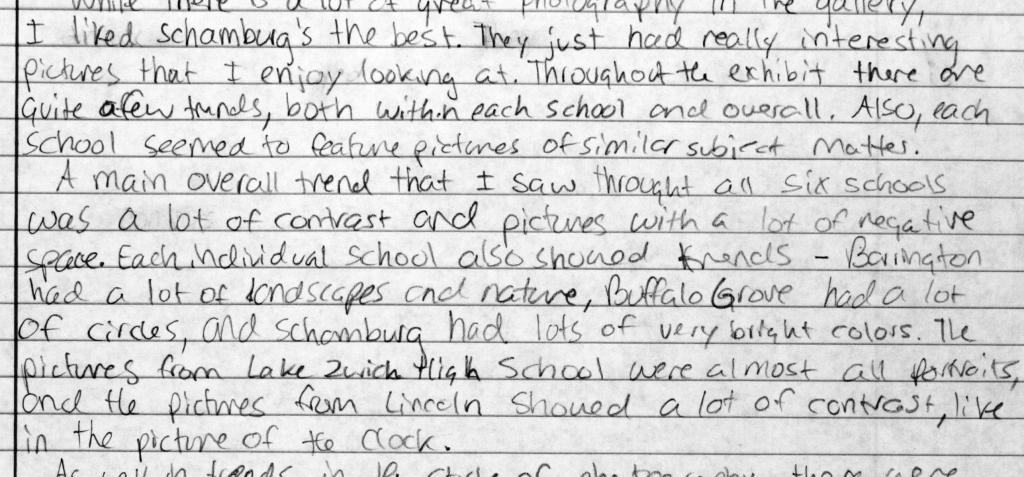 While there is a lot of great photography in the gallery,
I liked Schamburg's the best. They just had really interesting
pictures that I enjoy looking at. Throughout the exhibit there are
quite a few trends, both within each school and overall. Also, each
school seemed to feature pictures of similar subject matter.
A main overall trend that I saw throught all six schools
was a lot of contrast and pictures with a lot of negative
space. Each individual school also showed trends - Barington
had a lot of landscapes and nature, Buffalo Grove had a lot
of circles, and Schamburg had lots of very bright colors. The
pictures from Lake Zurich High School were almost all portraits,
and the pictures from Lincoln showed a lot of contrast, like
in the picture of the clock.
trends in of there were